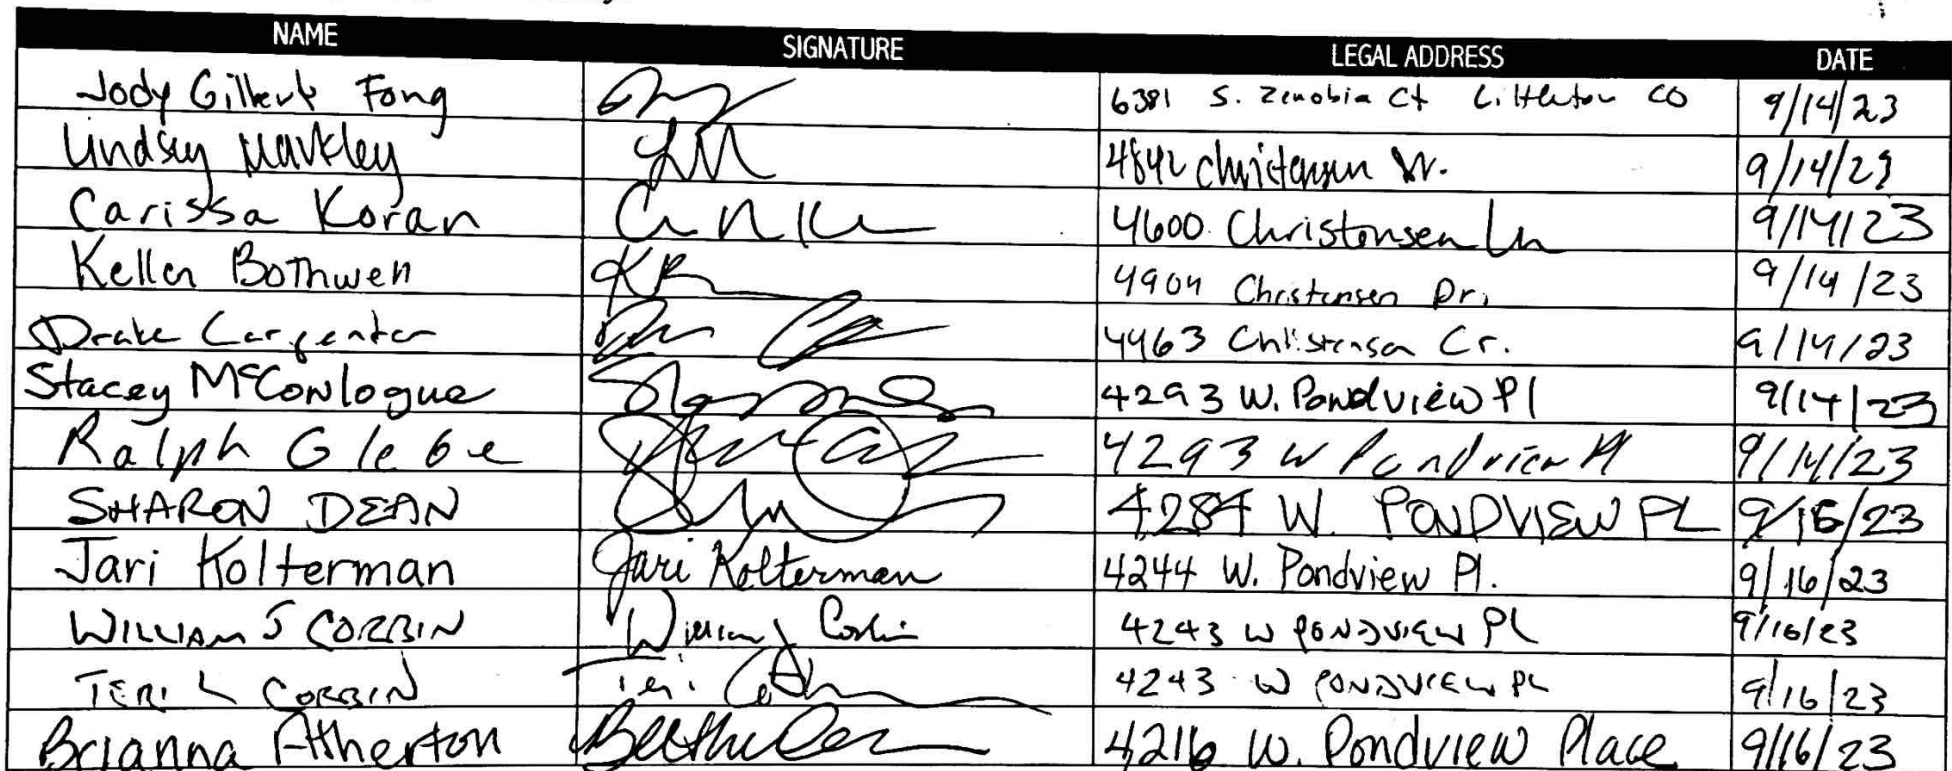 NAME SIGNATURE LEGAL ADDRESS DATE
Jody Gilbert Fong 6381 S. Zenobia Ct Littleton CO 9/14/23
Lindsey Markley LM 4842 Christensen Dr. 9/14/23
Carissa Koran 4600 Christensen Ln 9/14/23
Keller Bothwell KB 4904 Christensen Dr. 9/14/23
Drake Carpenter 4463 Christensen Cr. 9/14/23
Stacey McConlogue 4293 W. Pondview Pl 9/14/23
Ralph Glebe 4293 W Pondview Pl 9/14/23
SHARON DEAN 4284 W. PONDVIEW PL 9/16/23
Jari Kolterman Jari Kolterman 4244 W. Pondview Pl. 9/16/23
WILLIAM J CORBIN William J Corbin 4243 W PONDVIEW PL 9/16/23
TERI L CORBIN Teri 4243 W PONDVIEW PL 9/16/23
Brianna Atherton 4216 W. Pondview Place 9/16/23